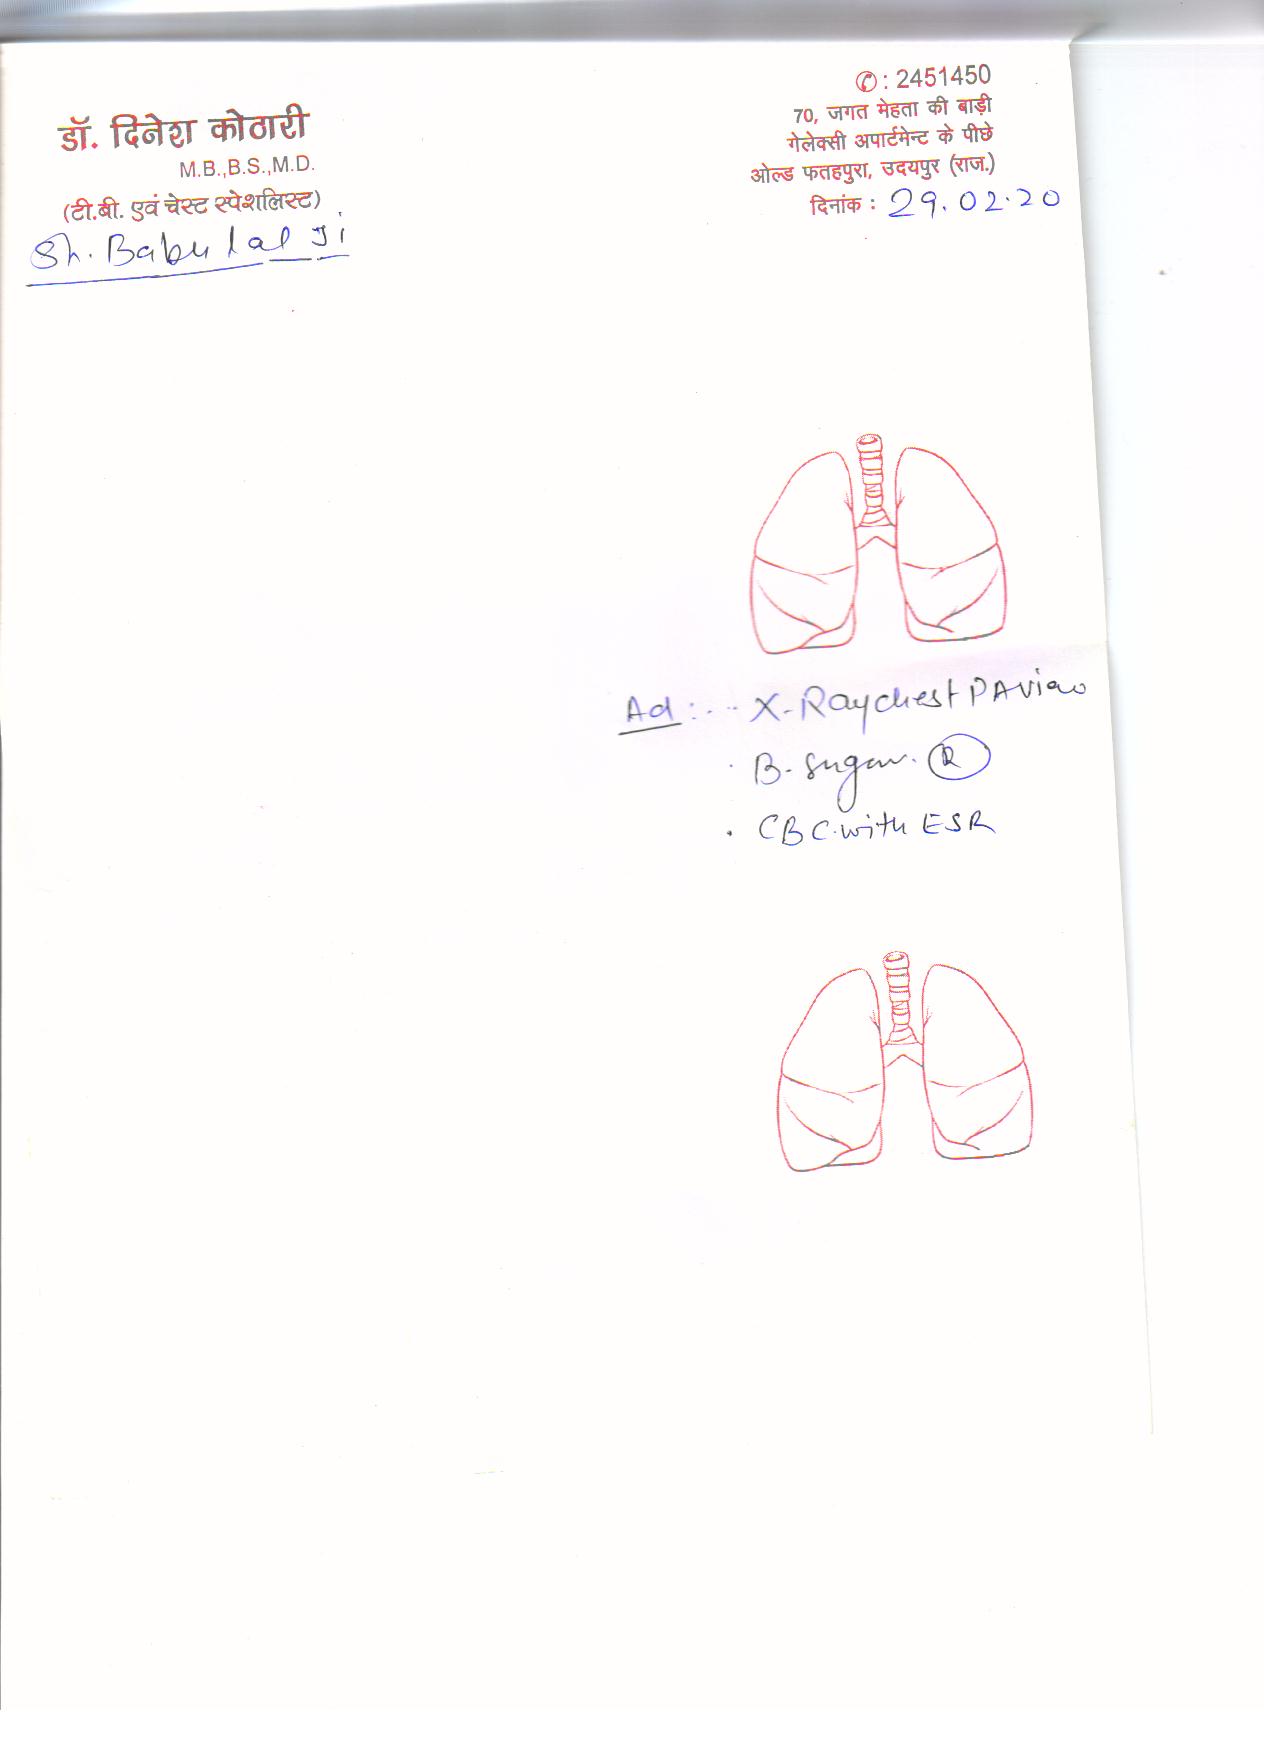 डॉ. दिनेश कोठारी
M.B.,B.S.,M.D.
(टी.बी. एवं चेस्ट स्पेशलिस्ट)
✆ : 2451450
70, जगत मेहता की बाड़ी
गेलेक्सी अपार्टमेन्ट के पीछे
ओल्ड फतहपुरा, उदयपुर (राज.)
दिनांक : 29.02.20
Sh. Babu Lal Ji
Ad :- X-Ray chest PA View
B-Sugar. (R)
CBC with ESR